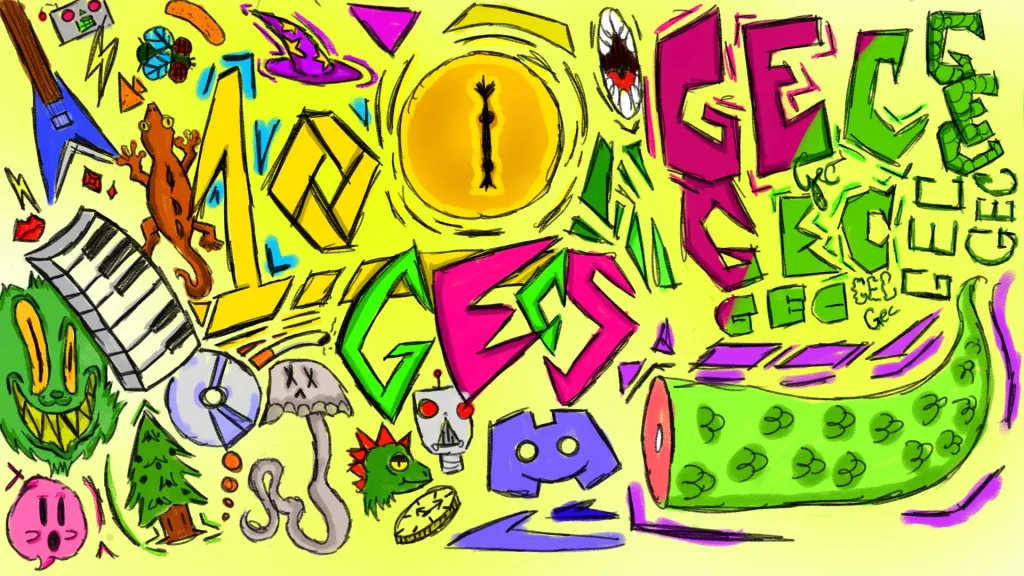 10
GECS
GEC
GEC
Gec
GEC
GEC
GEC
GEC
GEC
Gec